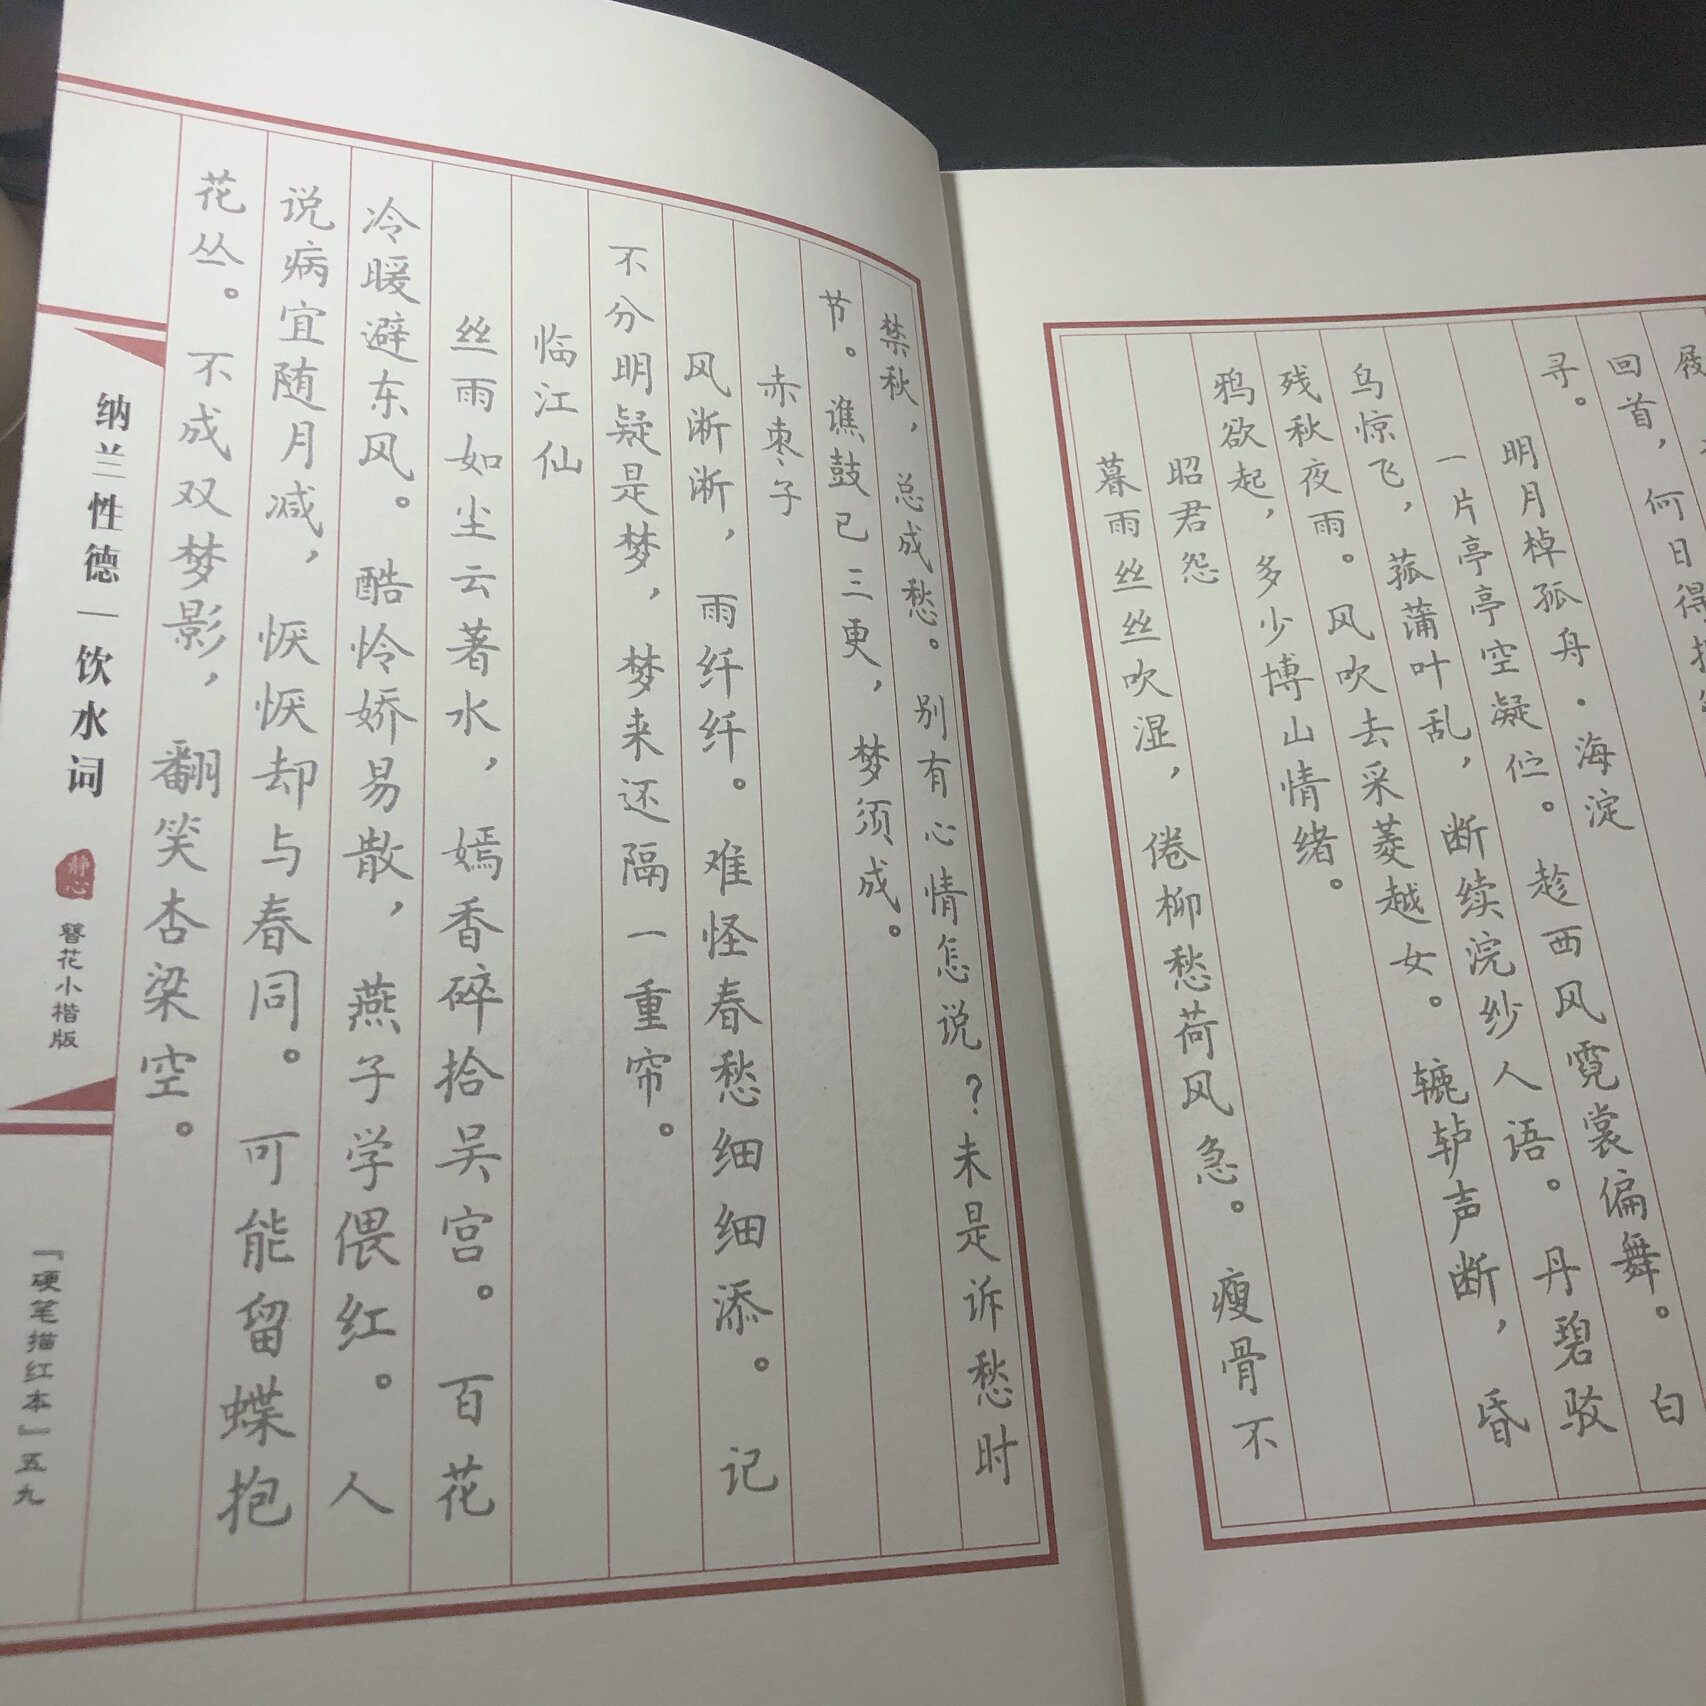 回首，何日得
寻。
明月棹孤舟·海淀
一片亭亭空凝伫。趁西风霓裳偏舞。白
鸟惊飞，菰蒲叶乱，断续浣纱人语。丹碧驳
残秋夜雨。风吹去采菱越女。辘轳声断，昏
鸦欲起，多少博山情绪。
昭君怨
暮雨丝丝吹湿，倦柳愁荷风急。瘦骨不
禁秋，总成愁。别有心情怎说？未是诉愁时
节。谯鼓已三更，梦须成。
赤枣子
风淅淅，雨纤纤。难怪春愁细细添。记
不分明疑是梦，梦来还隔一重帘。
临江仙
丝雨如尘云著水，嫣香碎拾吴宫。百花
冷暖避东风。酷怜娇易散，燕子学偎红。人
说病宜随月减，恹恹却与春同。可能留蝶抱
花丛。不成双梦影，翻笑杏梁空。
纳兰性德｜饮水词 静心 簪花小楷版
「硬笔描红本」五九